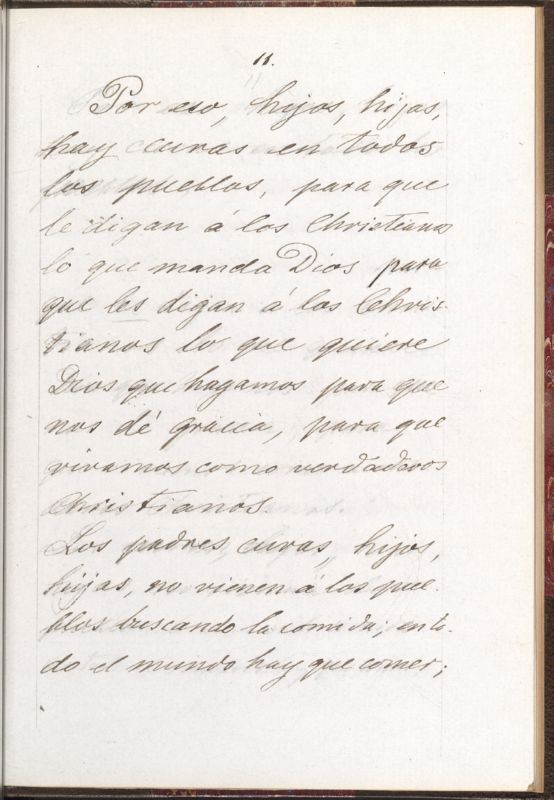 11.
Por eso, hijos, hijas,
hay curas en todos
los pueblos, para que
le digan á los Christianos
lo que manda Dios para
que les digan á los Chris-
tianos lo que quiere
Dios que hagamos para que
nos dé gracia, para que
vivamos como verdaderos
Christianos
Los padres curas, hijos,
hijas, no vienen á los pue-
blos buscando la comida; en to-
do el mundo hay que comer;